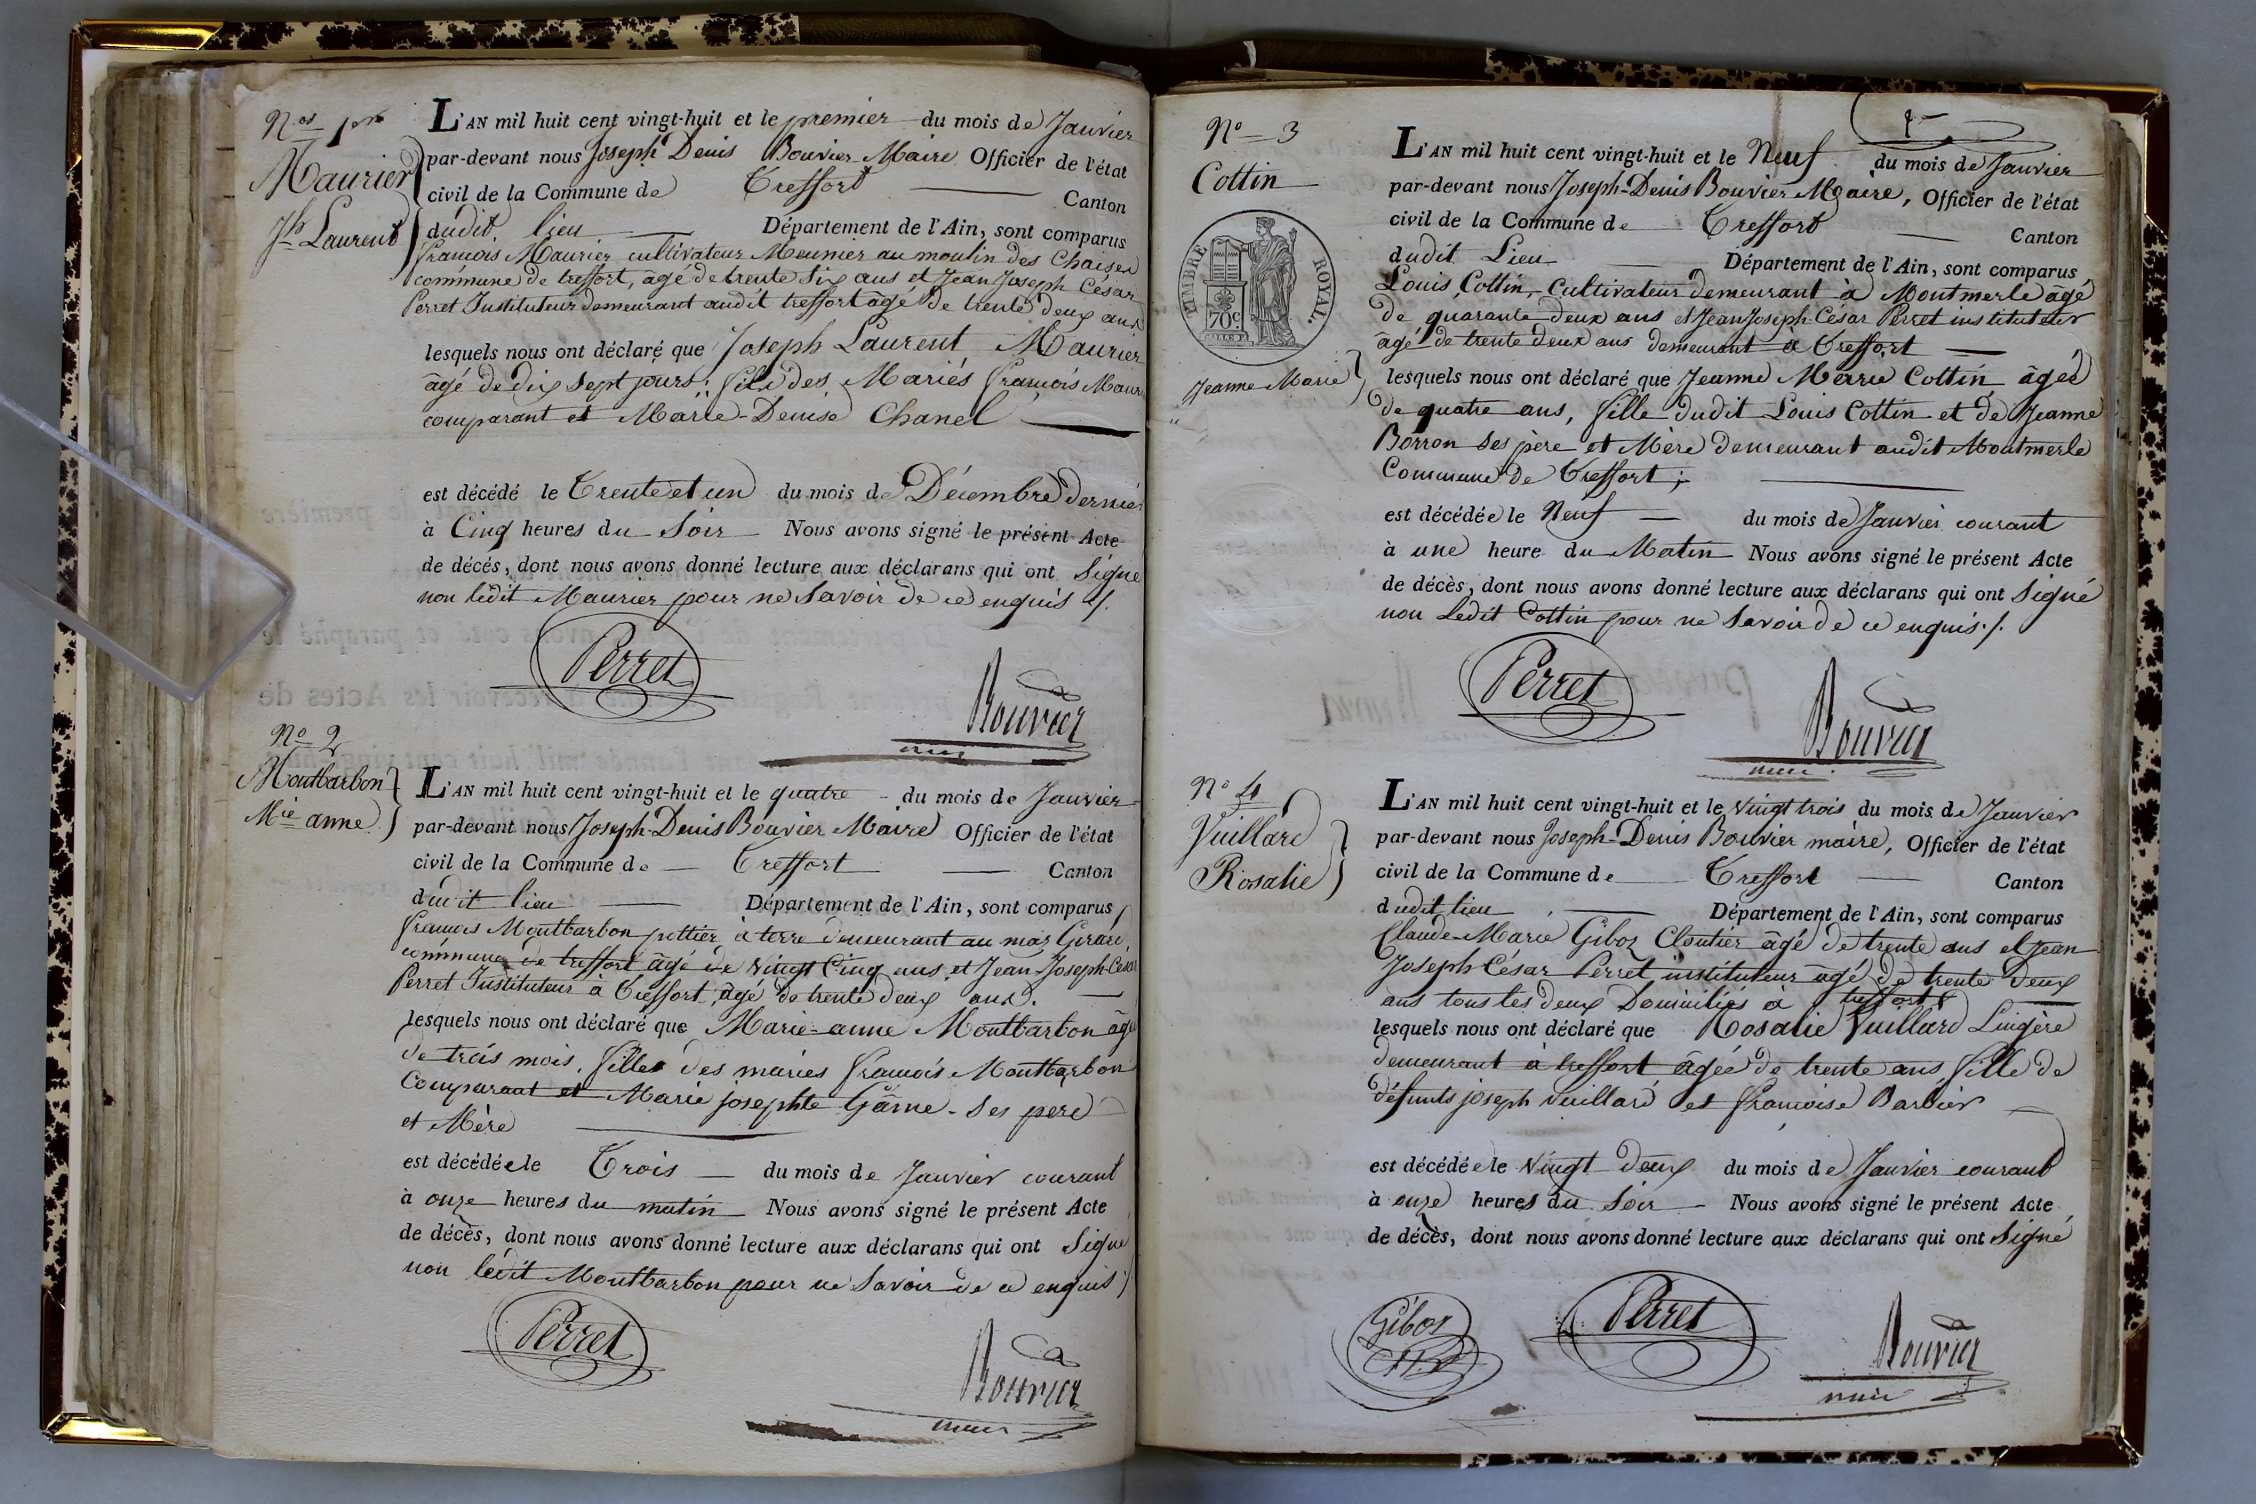 Nos 1er
Maurier
Jh Laurent
L'AN mil huit cent vingt-huit et le premier du mois de Janvier
par-devant nous Joseph Denis Bouvier Maire Officier de l'état
civil de la Commune de Treffort Canton
dudit lieu Département de l'Ain, sont comparus
François Maurier cultivateur Meunier au moulin des Chaises
commune de treffort, âgé de trente six ans et Jean Joseph César
Perret Instituteur demeurant audit treffort âgé de trente deux ans
lesquels nous ont déclaré que Joseph Laurent Maurier
âgé de dix sept jours; fils des Mariés François Maurier
comparant et Marie-Denise Chanel
est décédé le Trente et un du mois de Décembre dernier
à Cinq heures du Soir Nous avons signé le présent Acte
de décés, dont nous avons donné lecture aux déclarans qui ont Signé
non ledit Maurier pour ne Savoir de ce enquis ./.
Perret
Bouvier
maire
No 2
Montbarbon
Mie anne
L'AN mil huit cent vingt-huit et le quatre du mois de Janvier
par-devant nous Joseph-Denis Bouvier Maire Officier de l'état
civil de la Commune de Treffort Canton
dudit lieu Département de l'Ain, sont comparus
François Montbarbon pottier à terre demeurant au mas Girard
commune de treffort âgé de vingt Cinq ans et Jean Joseph César
Perret Instituteur à Treffort, âgé de trente deux ans.
lesquels nous ont déclaré que Marie-anne Montbarbon âgée
de trois mois, fille des mariés François Montbarbon
Comparant et Marie josephte Gâme - Ses pere
et Mère
est décédée le Trois du mois de Janvier courant
à onze heures du matin Nous avons signé le présent Acte
de décès, dont nous avons donné lecture aux déclarans qui ont Signé
non ledit Montbarbon pour ne Savoir de ce enquis ./.
Perret
Bouvier
maire
No 3
Cottin
TIMBRE ROYAL.
70c
Jeanne Marie
L'AN mil huit cent vingt-huit et le Neuf du mois de Janvier
par-devant nous Joseph-Denis Bouvier Maire, Officier de l'état
civil de la Commune de Treffort Canton
dudit Lieu Département de l'Ain, sont comparus
Louis Cottin, Cultivateur demeurant à Montmerle âgé
de quarante deux ans et Jean Joseph César Perret instituteur
âgé de trente deux ans demeurant à Treffort
lesquels nous ont déclaré que Jeanne Marie Cottin âgée
de quatre ans, fille dudit Louis Cottin et de Jeanne
Borron Ses père et Mère demeurant audit Montmerle
Commune de Treffort;
est décédée le Neuf du mois de Janvier courant
à une heure du Matin Nous avons signé le présent Acte
de décès, dont nous avons donné lecture aux déclarans qui ont Signé
non Ledit Cottin pour ne Savoir de ce enquis ./.
Perret
Bouvier
maire
No 4
Vuillard
Rosalie
L'AN mil huit cent vingt-huit et le vingt trois du mois de Janvier
par-devant nous Joseph-Denis Bouvier maire, Officier de l'état
civil de la Commune de Treffort Canton
dudit lieu Département de l'Ain, sont comparus
Claude-Marie Giboz Cloutier âgé de trente ans et Jean
Joseph César Perret instituteur âgé de trente Deux
ans tous les deux Domiciliés à treffort
lesquels nous ont déclaré que Rosalie Vuillard Lingère
demeurant à treffort âgée de trente ans fille de
défunts joseph vuillard et françoise Barbier
est décédée le vingt deux du mois de Janvier courant
à onze heures du Soir Nous avons signé le présent Acte
de décès, dont nous avons donné lecture aux déclarans qui ont Signé
Giboz
Perret
Bouvier
maire